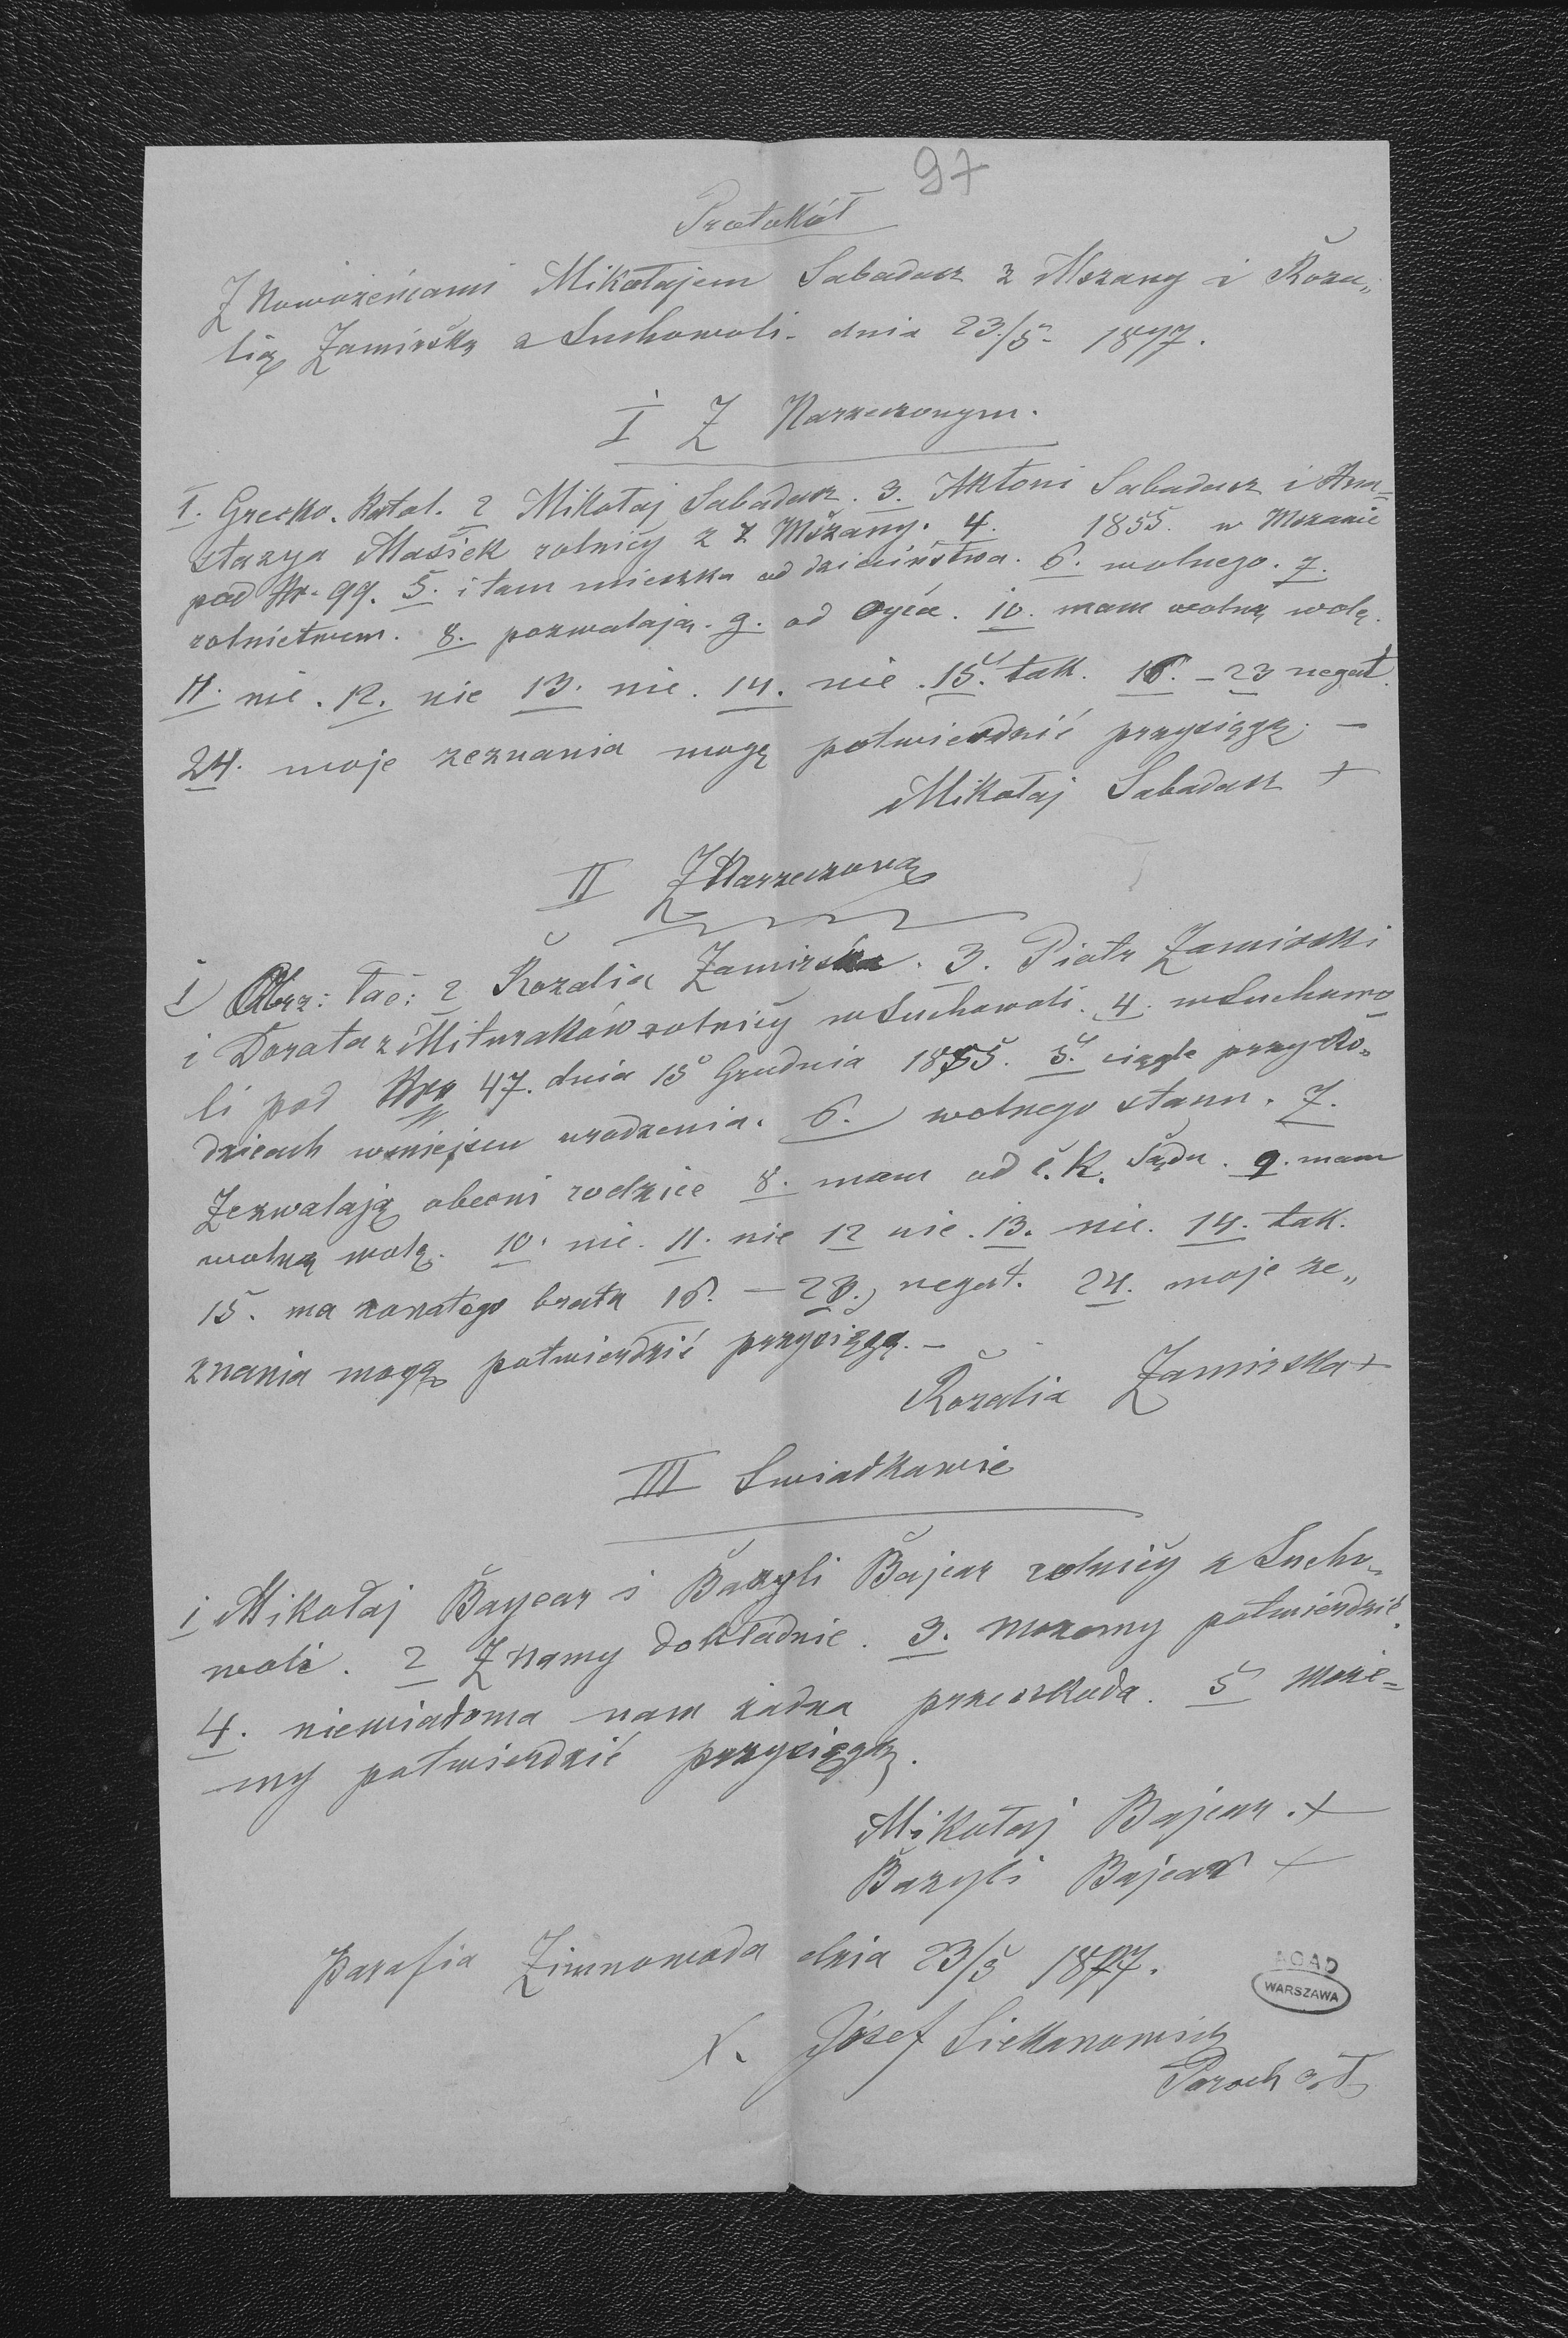 97
Protokół
Z Nowożeńcami Mikołajem Sabadasz z Mszany i Roza„
lią Zamirską z Suchowoli - dnia 23./5. 1877.
I Z Narzeczonym.
1. Grecko. Katol. 2 Mikołaj Sabadasz. 3. Antoni Sabadasz i Ana=
stazya Masiek rolnicy z z Mszany. 4. 1855. w Mszanie
pod Nr. 99. 5. i tam mieszka od dzieciństwa. 6. wolnego. 7.
rolnictwem. 8. pozwalają. 9. od Ojca. 10. mam wolną wolę.
11. nie. 12. nie 13. nie. 14. nie. 15. tak. 16. - 23 negat.
24. moje zeznania mogę potwierdzić przysięgą. -
Mikołaj Sabadasz +
II Z Narzeczoną
1 Obrz: łać: 2 Rozalia Zamirska. 3. Piotr Zamirski
i Dorota z Mituraków rolnicy w Suchowoli. 4. w Suchowo
li pod Nro 47. dnia 15 Grudnia 1855. 5. ciągle przy Ro„
dzicach w miejscu urodzenia. 6. wolnego stanu. 7.
Zezwalają obecni rodzice 8. mam od c. k. Sądu. 9. mam
wolną wolę. 10. nie. 11. nie 12 nie. 13. nie. 14. tak.
15. ma żonatego brata 16. - 23. negat. 24. moje ze„
znania mogę potwierdzić przysięgą. -
Rozalia Zamirska +
III Swiadkowie
1 Mikołaj Bajcar i Bazyli Bajcar rolnicy z Sucho„
woli. 2 Znamy dokładnie. 3. możemy potwierdzić.
4. niewiadoma nam żadna przeszkoda. 5 może=
my potwierdzić przysięgą.
Mikołaj Bajcar. +
Bazyli Bajcar +
Parafia Zimnowoda dnia 23/5 1877.
X. Józef
Paroch
AGAD
WARSZAWA